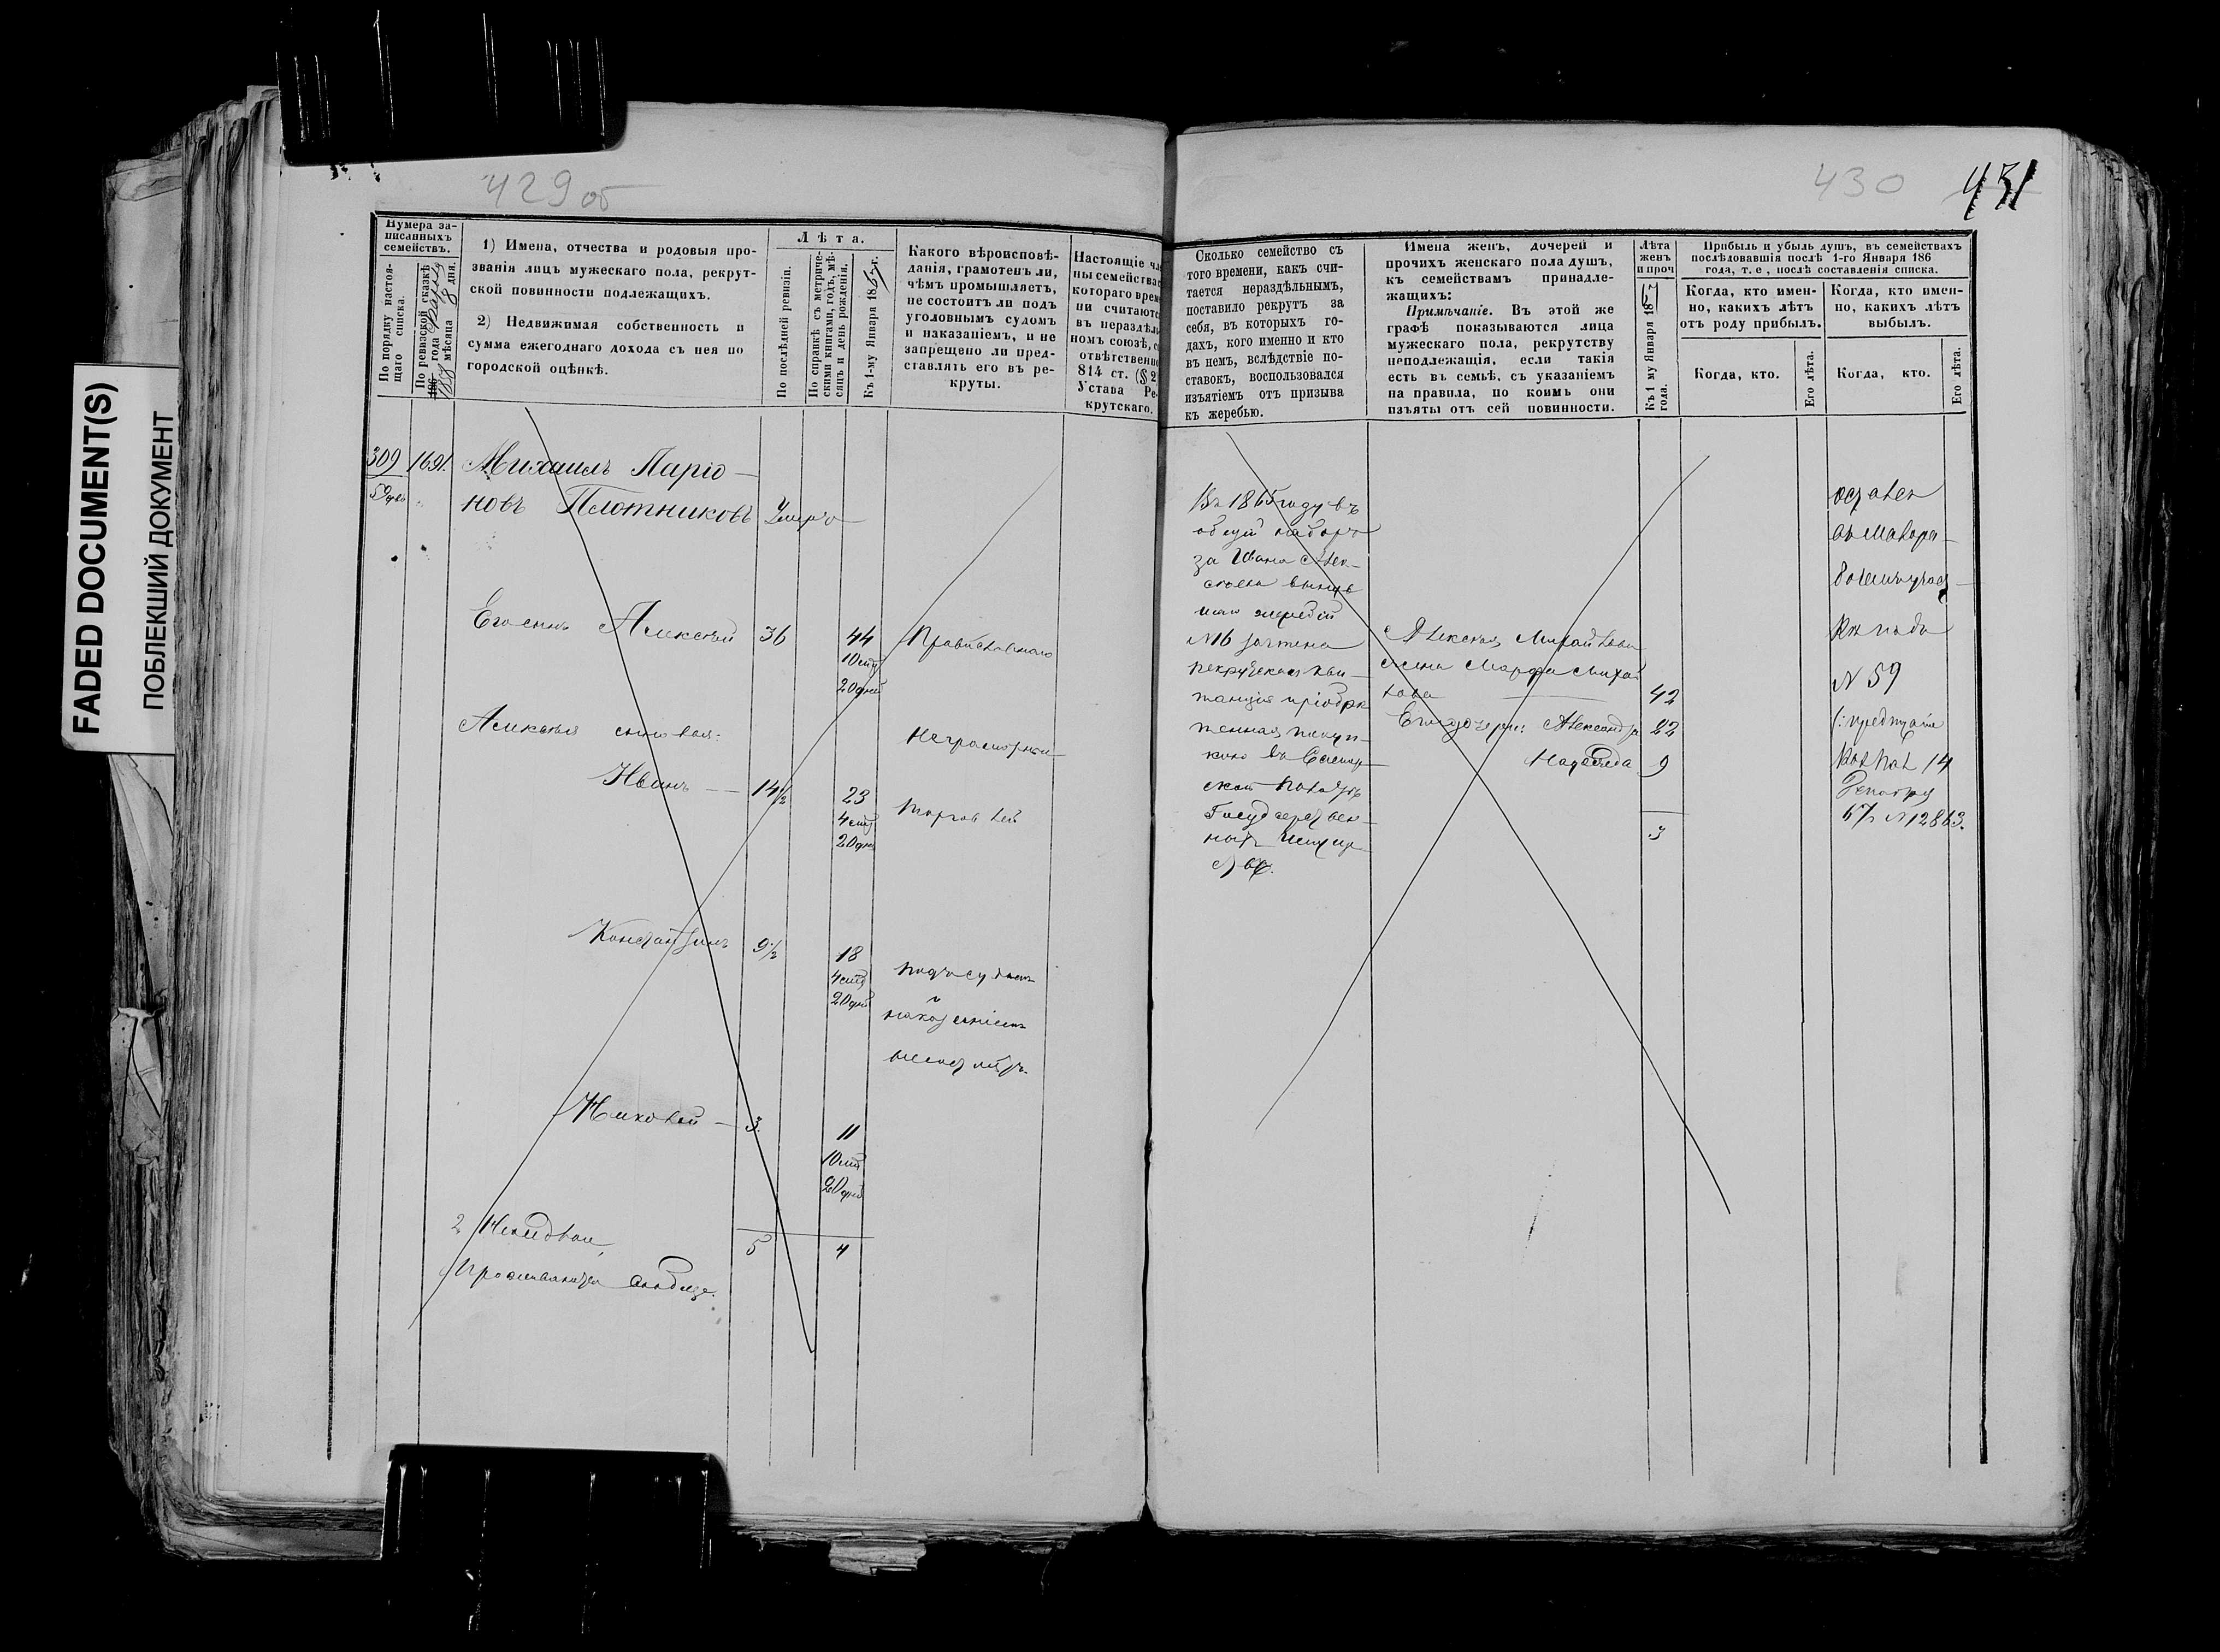 FADED DOCUMENT(S)
ПОБЛЕКШИЙ ДОКУМЕНТ
429 об
Нумера за-
писанныхъ
семействъ.
По порядку настоя-
щаго списка.
По ревизской сказкѣ
186 года
1858 мѣсяца 8 дня.
1) Имена, отчества и родовыя про-
званія лицъ мужескаго пола, рекрут-
ской повинности подлежащихъ.
2) Недвижимая собственность и
сумма ежегоднаго дохода съ нея по
городской оцѣнкѣ.
Лѣта.
По послѣдней ревизіи.
По справкѣ съ метриче-
скими книгами, годъ, мѣ-
сяцъ и день рожденія.
Къ 1-му Января 1867 г.
Какого вѣроисповѣ-
данія, грамотенъ ли,
чѣмъ промышляетъ,
не состоитъ ли подъ
уголовнымъ судомъ
и наказаніемъ, и не
запрещено ли пред-
ставлять его въ ре-
круты.
Настоящіе чле
ны семейства
котораго врем
ни считаютс
въ нераздѣл
номъ союзѣ, с
отвѣтственно
814 ст. (§ 2
Устава Ре-
крутскаго.
309 1691.
Михаилъ Ларіо-
новъ Плотниковъ Умеръ
Его сынъ Алексѣй 36 44
10 мѣс
20 дней
Православнаго
Алексѣя сыновья:
неграмотны
Иванъ — 14 1/2 23
4 мѣс
20 дней
торговлей
Константинъ 9 1/2 18
4 мѣс
20 дней
подъ судомъ
и
наказаніемъ
несостоятъ
Николай — 3 11
10 мѣс
20 дней
5 4
430 431
Сколько семейство съ
того времени, какъ счи-
тается нераздѣльнымъ,
поставило рекрутъ за
себя, въ которыхъ го-
дахъ, кого именно и кто
въ немъ, вслѣдствіе по-
ставокъ, воспользовался
изъятіемъ отъ призыва
къ жеребью.
Имена женъ, дочерей и
прочихъ женскаго пола душъ,
къ семействамъ принадле-
жащихъ:
Примѣчаніе. Въ этой же
графѣ показываются лица
мужескаго пола, рекрутству
неподлежащія, если такія
есть въ семьѣ, съ указаніемъ
на правила, по коимъ они
изъяты отъ сей повинности.
Лѣта
женъ
и проч
Къ 1 му Января 1867
года.
Прибыль и убыль душъ, въ семействахъ
послѣдовавшія послѣ 1-го Января 186
года, т. е, послѣ составленія списка.
Когда, кто имен-
но, какихъ лѣтъ
отъ роду прибылъ.
Когда, кто имен-
но, какихъ лѣтъ
выбылъ.
Когда, кто.
Его лѣта.
Когда, кто.
Его лѣта.
Въ 1865 году въ
общій наборъ
за Ивана Алек-
сѣева вынув-
шаго жребій
№ 16 зачтена
рекрутская кви-
танція пріобрѣ-
тенная покуп-
кою въ
Палатѣ
Государствен-
ныхъ Имущ-
ствъ.
Алексѣя Михайлова
жена Марфа Михай
лова 42
Его дочери: Александра 22
Надежда 9
3
№ 59
14
Декабря
67 г. № 12863.